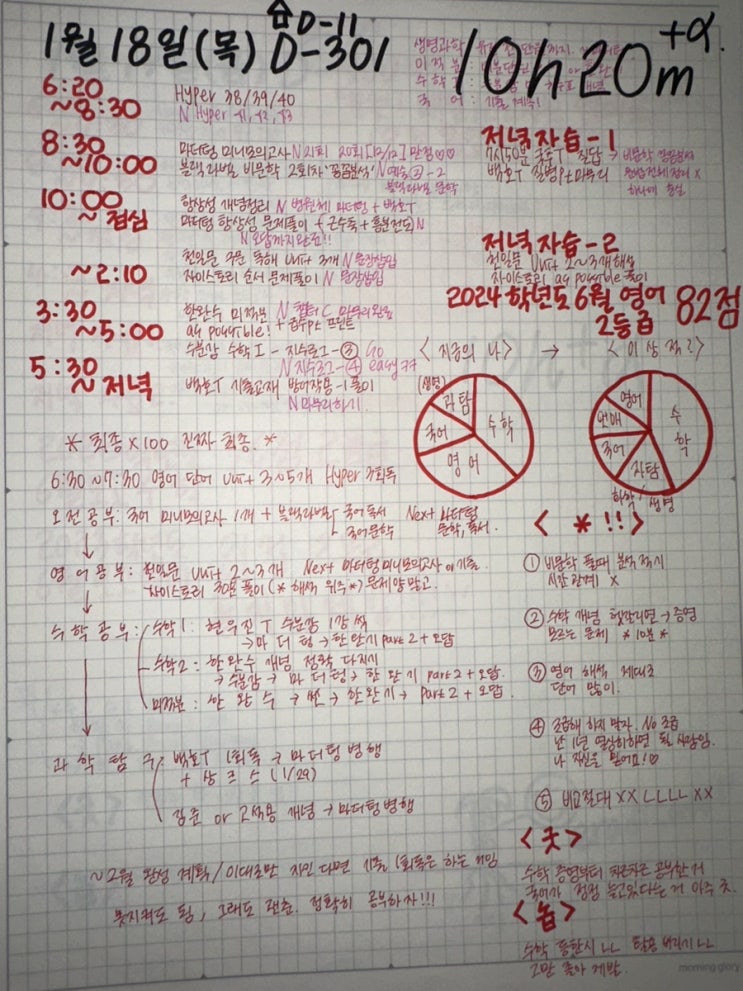 1월 18일(목) D-11
D-301
10h 20m +α.
6:20
~8:30
Hyper 38/39/40
N Hyper
8:30
~10:00
마더텅 미니모의고사 N 21회 20회 [12/12] 만점♡♡
블랙라벨 비문학 2회차 '꼼꼼분석' N 예술②-2
블랙라벨 문학
10:00
~점심
항상성 개념정리 N 병원체 마더텅 + 백호T
마더텅 항상성 문제풀이 + 근수축 + 흥분전도 N
N 오답까지완료!!
~2:10
천일문 구문 독해 Unit 3개 N 문장삽입
자이스토리 순서 문제풀이 N 문장삽입
3:30
~5:00
한완수 미적분 N 챕터 C 마무리완료
as possible! + 급수 프린트
수분감 수학I - 지수로그-③ Go
N 지수로그-④ easy ㅋㅋ
5:30
~저녁
백호T 기출교재 방어작용-1 풀이
N 마무리하기.
저녁자습-1
7시50분 국호T 질답
백호T 질병 Pt 마무리
저녁자습-2
천일문 Unit 2~3개 해설
자이스토리 as possible 풀이
2024학년도 6월 영어 82점
2등급
<지금의 나> → <이상적?>
(생명)
과탐
수학
국어
영어
영어
언매
수학
국어
과탐
화학/생명
* 최종×100 진짜 최종. *
6:30~7:30 영어 단어 Unit 3~5개 Hyper 3회독
오전공부: 국어 미니모의고사 1개 + 블랙라벨 국어독서 Next 마더텅
국어문학 문학, 독서.
영어공부: 천일문 Unit 2~3개 Next 마더텅미니모의고사 or 기출.
자이스토리 30문풀이 (*해석 위주*) 문제양 말고.
수학공부: 수학1: 현우진T 수분감 1강씩
→ 마더텅 → 한완기 part 2 + 오답
수학2: 한완수 개념 정확 다지기
→ 수분감 → 마더텅 → 한완기 part 2 + 오답.
미적분: 한완수 → 쎈 → 한완기 → part 2 + 오답.
과학탐구 백호T 1회독 → 마더텅 병행
+ 상크스 (1/29)
김준 or 고석용 개념 → 마더텅병행
~2월 완성 계획/이대로만 지킨다면 기출 1회독은 하는거임
못지켜도 됨, 그래도 괜춘. 정확히 공부하자!!!
< * !! >
① 비문학 풀때 분석 적기
시간 관계 X
② 수학 개념 헷갈리면 → 증명
모르는 문제 *10분*
③ 영어 해석 제대로
단어 많이.
④ 조급해 하지 말자. No 조급
난 1년 열심히하면 될 사람임.
나 자신을 믿어요!♡
⑤ 비교절대 XX LLLL XX
<굿>
수학 증명부터 차근차근 공부한 거
국어가 점점 늘고있다는 거 아주 굿.
<놉>
수학 등한시 ㄴㄴ
고만 졸아 제발.
morning glory